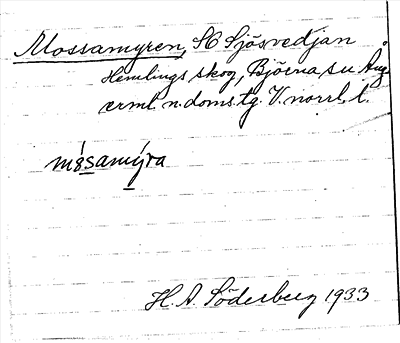 Mossamyren, SO Sjösvedjan
Hemlings skog, Björna sn Ång-
erml. n. doms.tg. V. norrl. l.
mòsamýra
H. A. Söderberg 1933